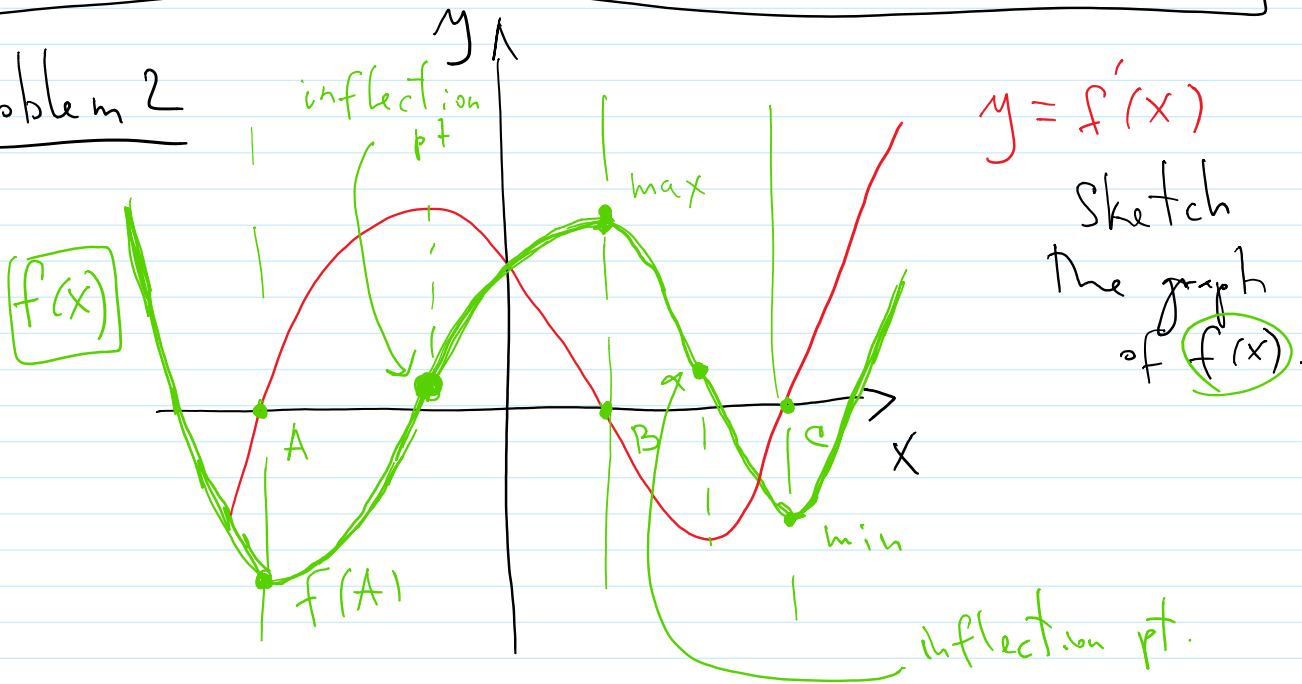 oblem 2
y
inflection
pt
max
y = f'(x)
Sketch
the graph
of f(x).
f(x)
A
B
C
x
f(A)
min
inflection pt.